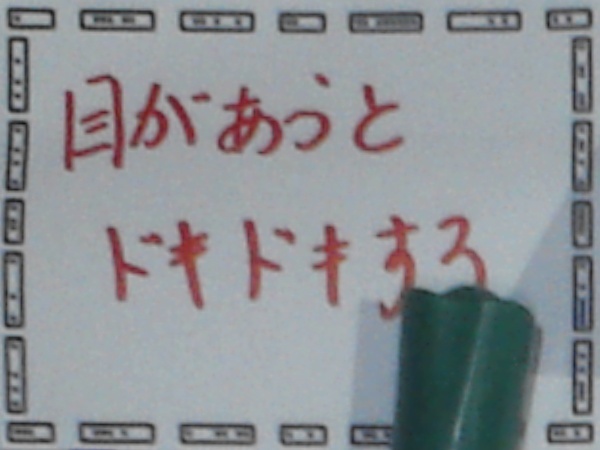 目があうと
ドキドキする